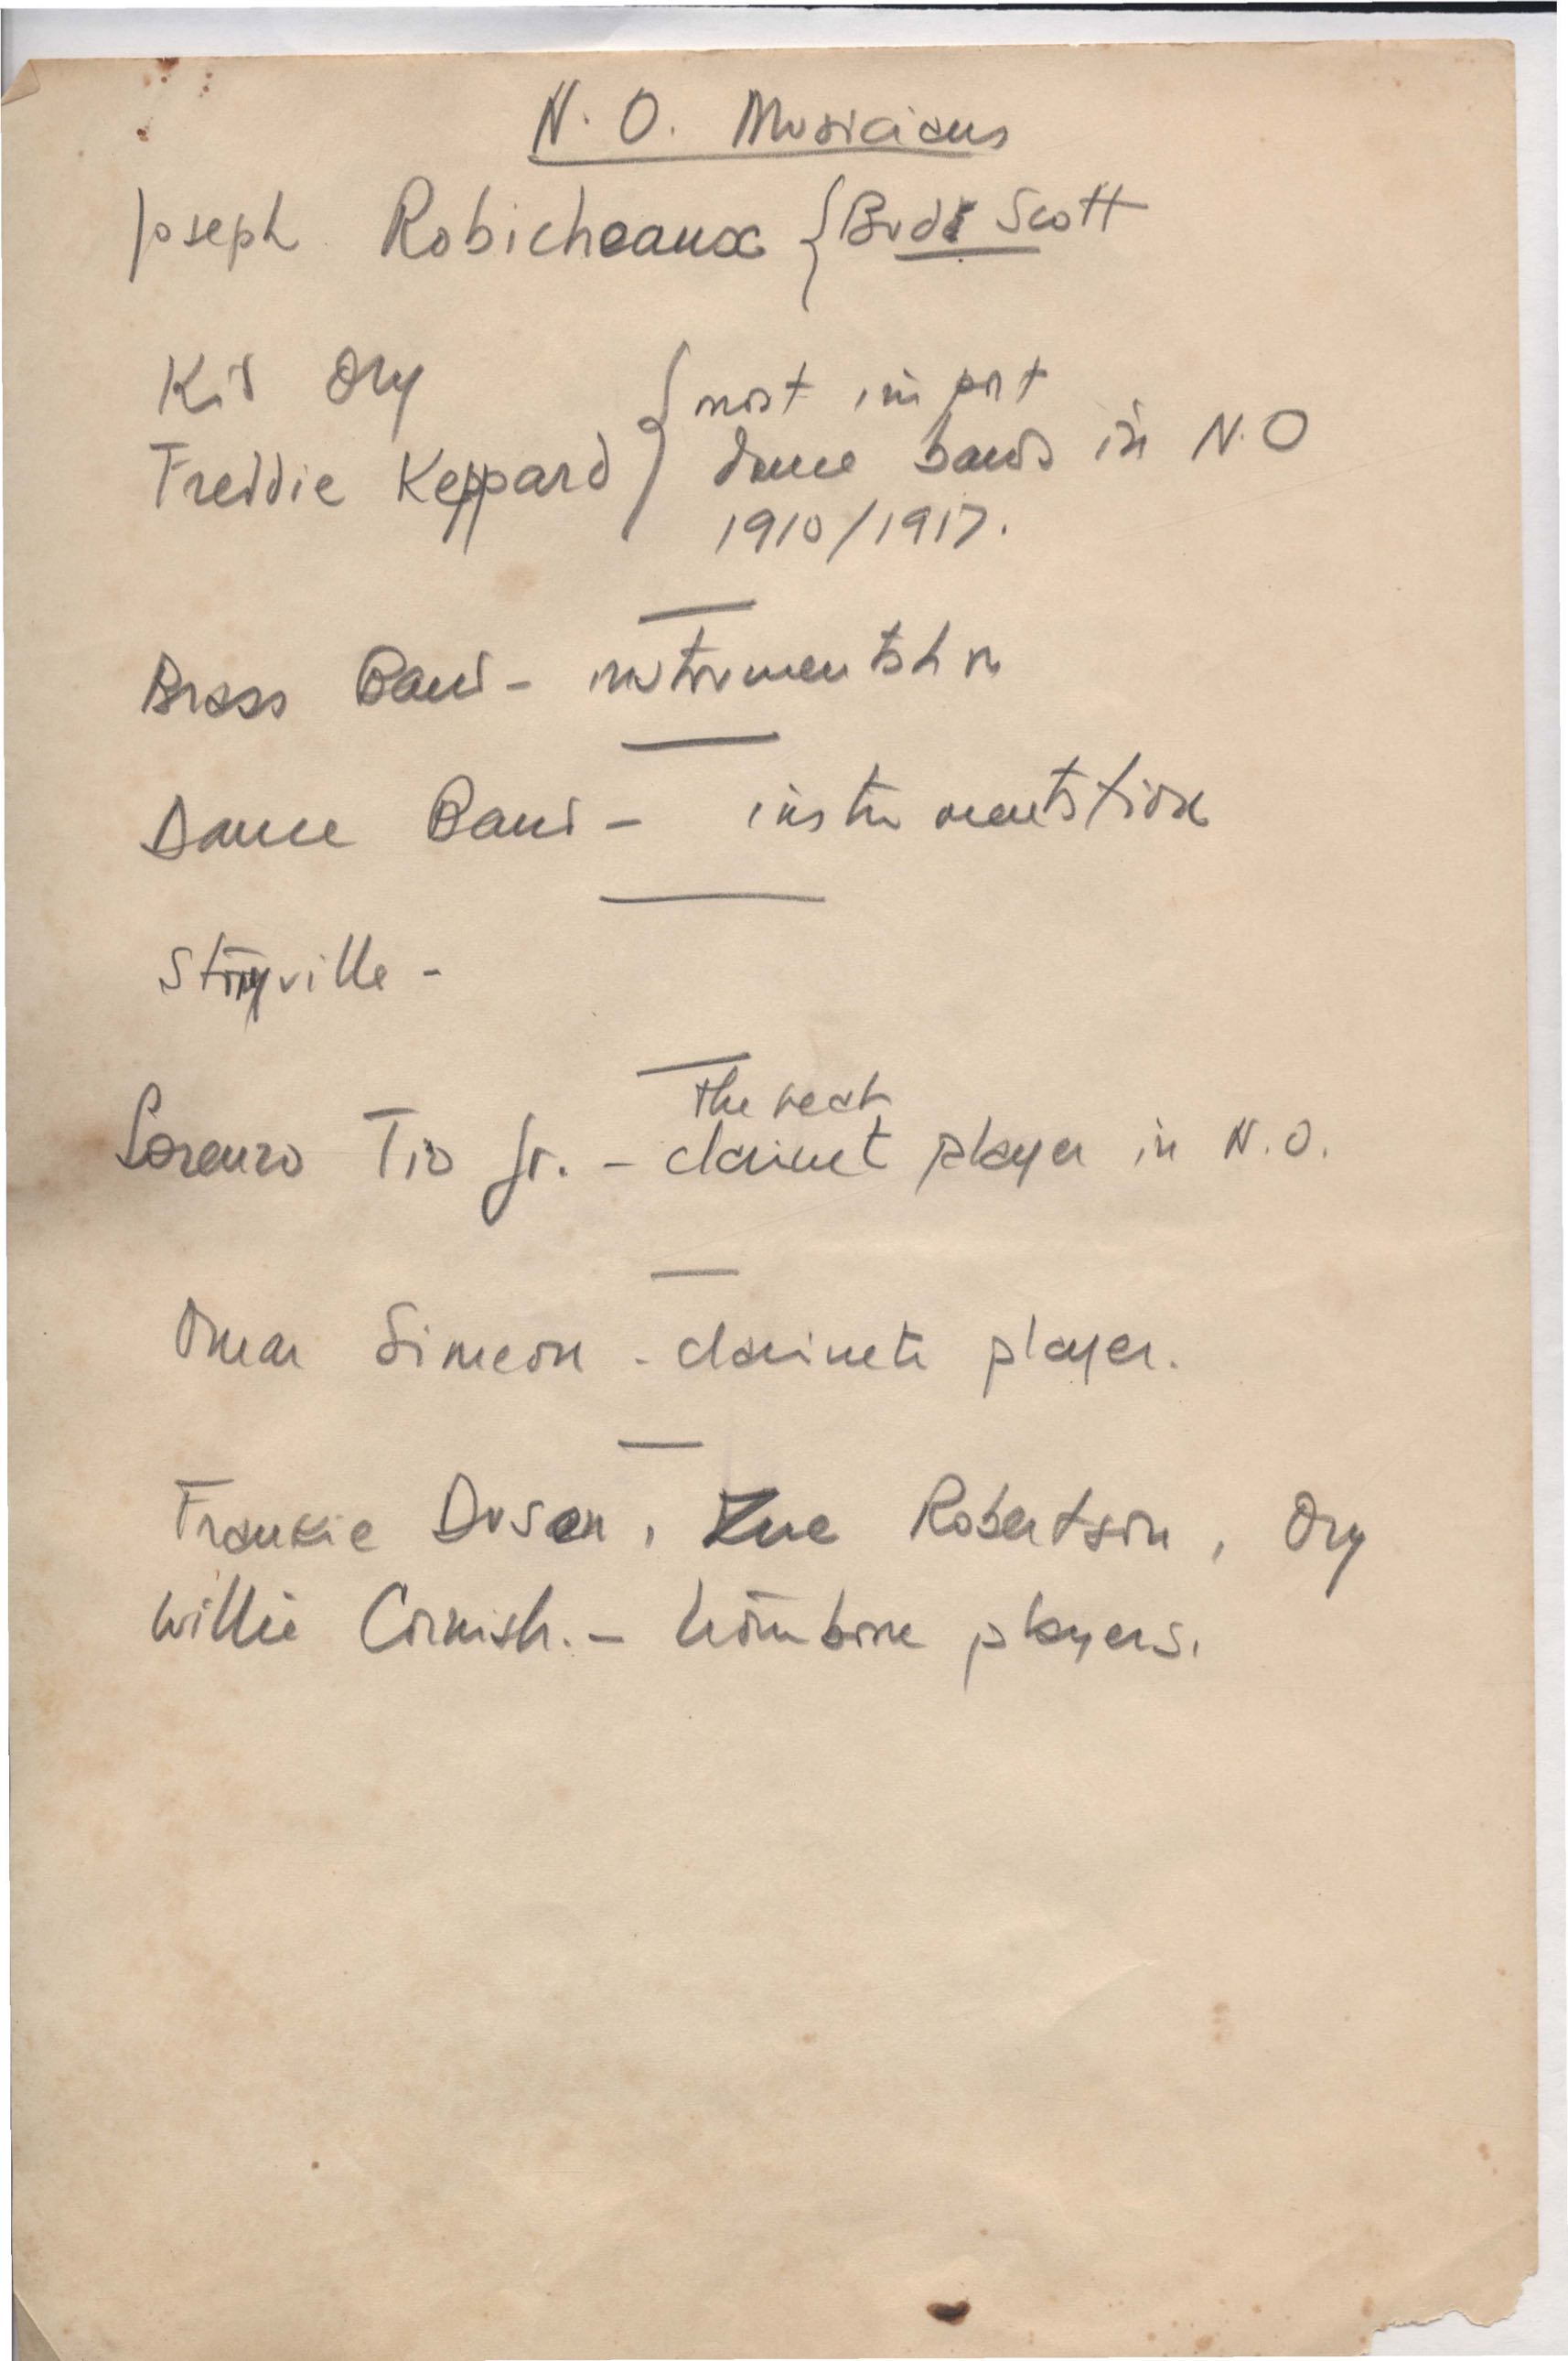 N. O. Musicians
Joseph Robicheaux { Bud Scott
Kid Ory } most import
Freddie Keppard } dance bands in N.O
1910/1917.
Brass Band - instrumentation
Dance Band - instrumentation
Storyville -
the best
Lorenzo Tio Jr. - clarinet player in N.O.
Omar Simeon - clarinet player.
Frankie Dusen, Zue Robertson, Ory
Willie Cornish. - trombone players.